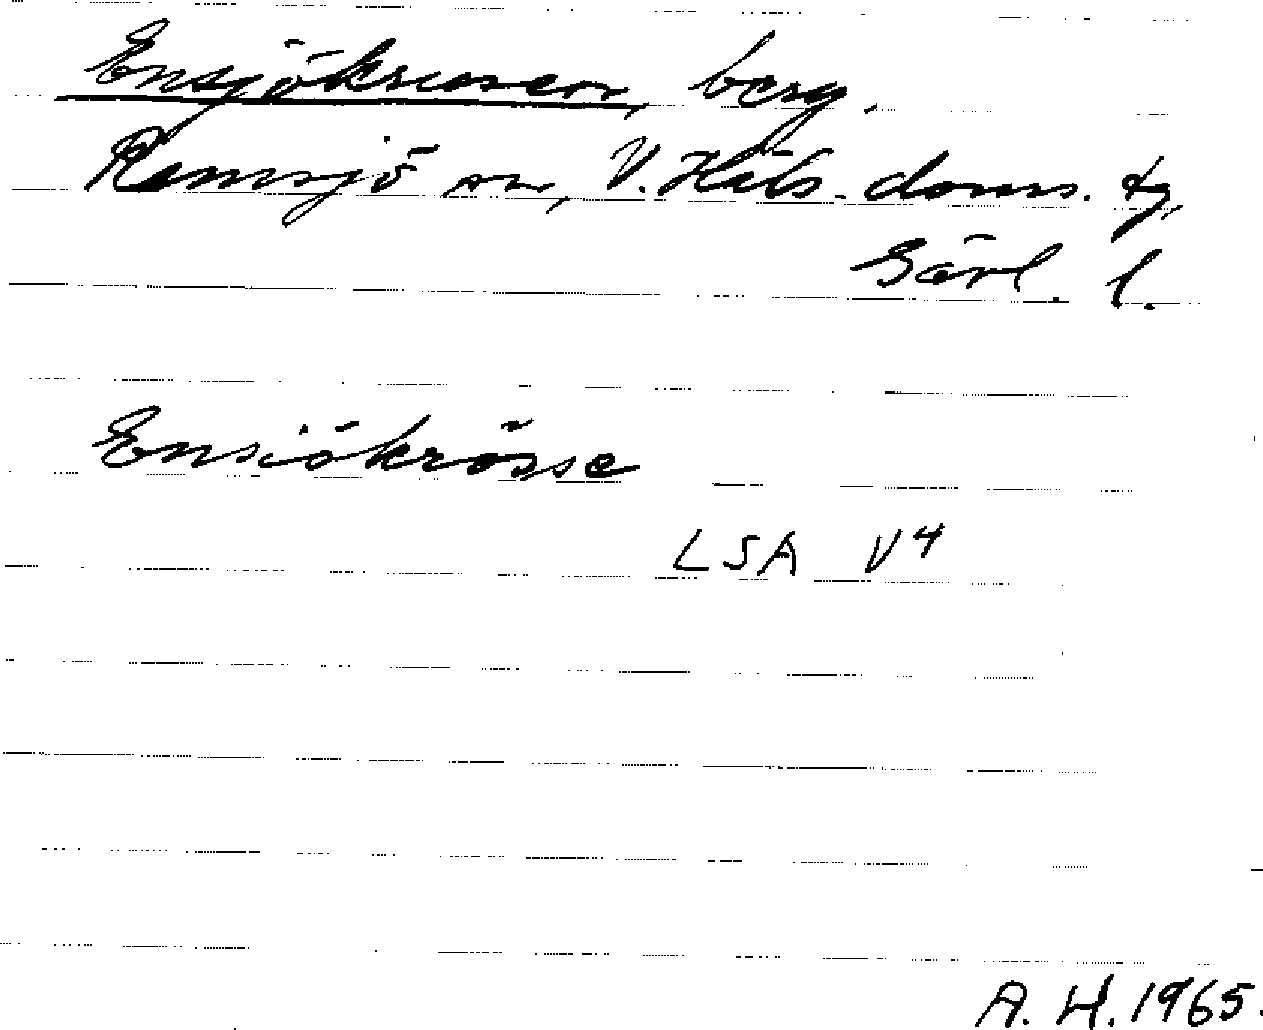 Ensjökrusen, berg.
Ramsjö sn, V. Häls. doms. tg,
Gävl. l.
Ensiökrösse
LSA V4
A. H. 1965.